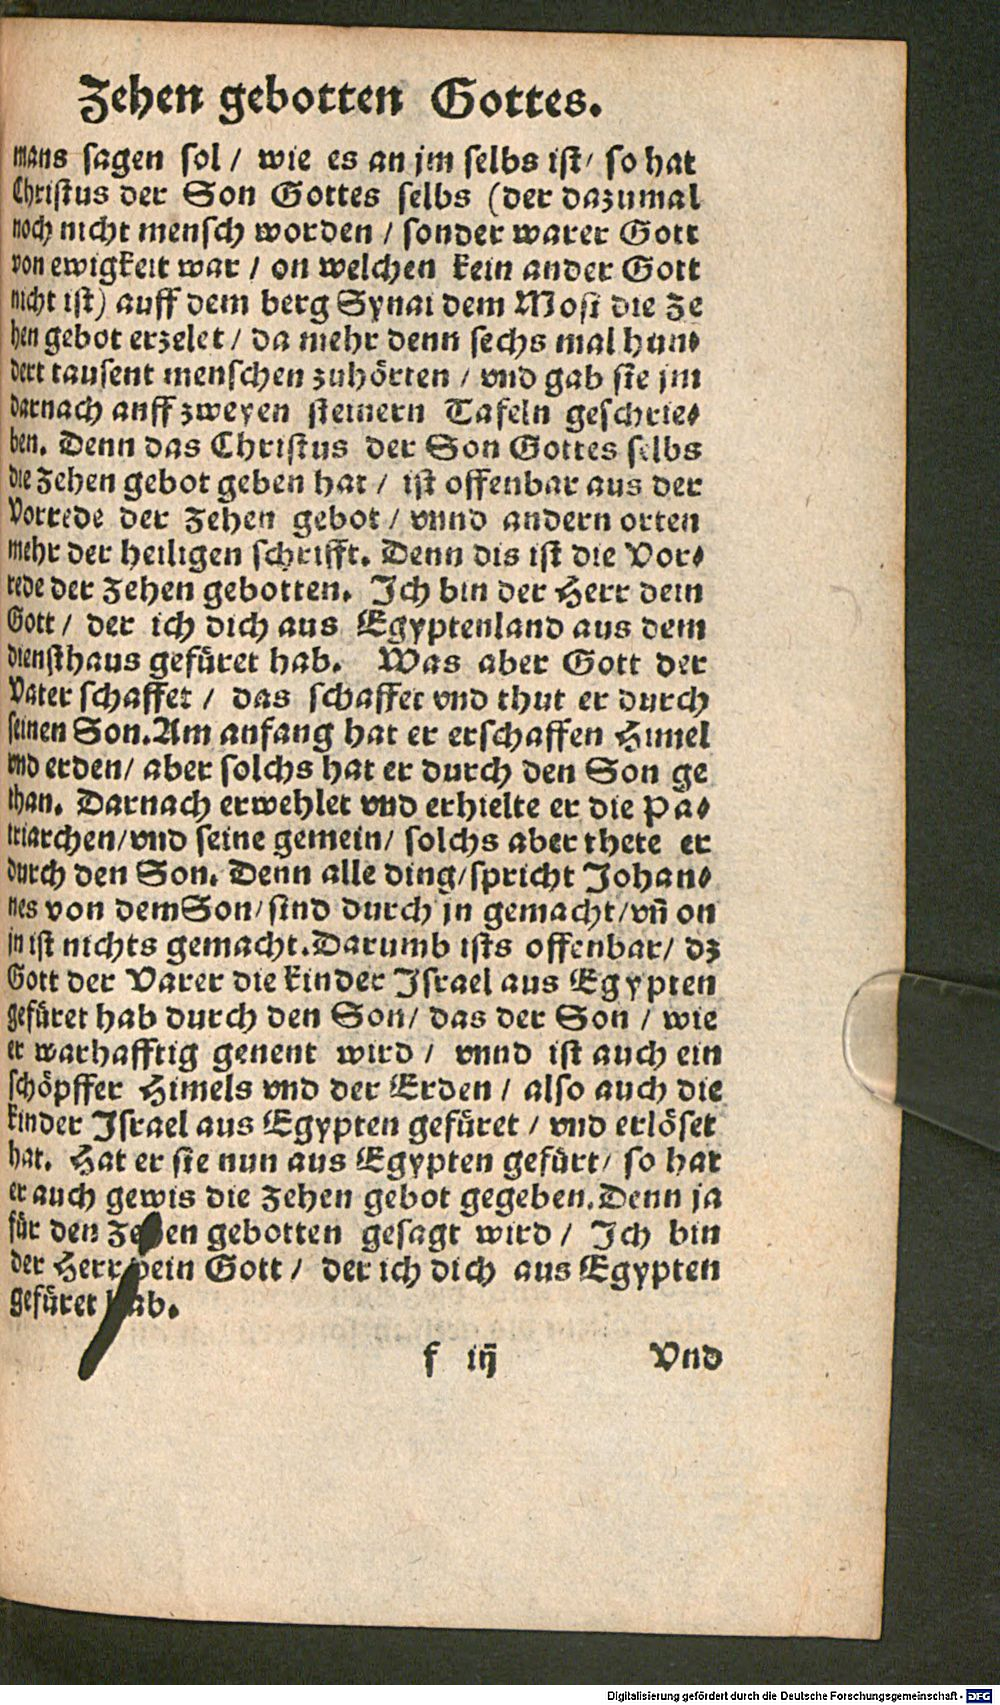 Zehen gebotten Gottes.
mans sagen sol / wie es an jm selbs ist / so hat
Christus der Son Gottes selbs (der dazumal
noch nicht mensch worden / sonder warer Gott
von ewigkeit war / on welchen kein ander Gott
nicht ist) auff dem berg Synai dem Mosi die Ze
hen gebot erzelet / da mehr denn sechs mal hun⸗
dert tausent menschen zuhörten / vnd gab sie jm
darnach auff zweyen steinern Tafeln geschrie⸗
ben. Denn das Christus der Son Gottes selbs
die Zehen gebot geben hat / ist offenbar aus der
Vorrede der Zehen gebot / vnnd andern orten
mehr der heiligen schrifft. Denn dis ist die Vor⸗
rede der Zehen gebotten. Ich bin der Herr dein
Gott / der ich dich aus Egyptenland aus dem
diensthaus gefüret hab. Was aber Gott der
Vater schaffet / das schaffet vnd thut er durch
seinen Son. Am anfang hat er erschaffen Himel
vnd erden / aber solchs hat er durch den Son ge
than. Darnach erwehlet vnd erhielte er die Pa⸗
triarchen / vnd seine gemein / solchs aber thete er
durch den Son. Denn alle ding / spricht Johan⸗
nes von dem Son / sind durch jn gemacht / vñ on
jn ist nichts gemacht. Darumb ists offenbar / dz
Gott der Vater die kinder Israel aus Egypten
gefüret hab durch den Son / das der Son / wie
er warhafftig genent wird / vnnd ist auch ein
schöpffer Himels vnd der Erden / also auch die
kinder Israel aus Egypten gefüret / vnd erlöset
hat. Hat er sie nun aus Egypten gefürt / so hat
er auch gewis die Zehen gebot gegeben. Denn ja
für den Zehen gebotten gesagt wird / Ich bin
der Herr dein Gott / der ich dich aus Egypten
gefüret hab.
f iij Vnd
Digitalisierung gefördert durch die Deutsche Forschungsgemeinschaft - DFG